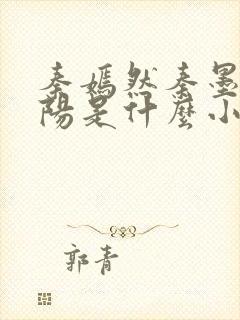 秦嫣然秦墨
陽是什麼小
郭青